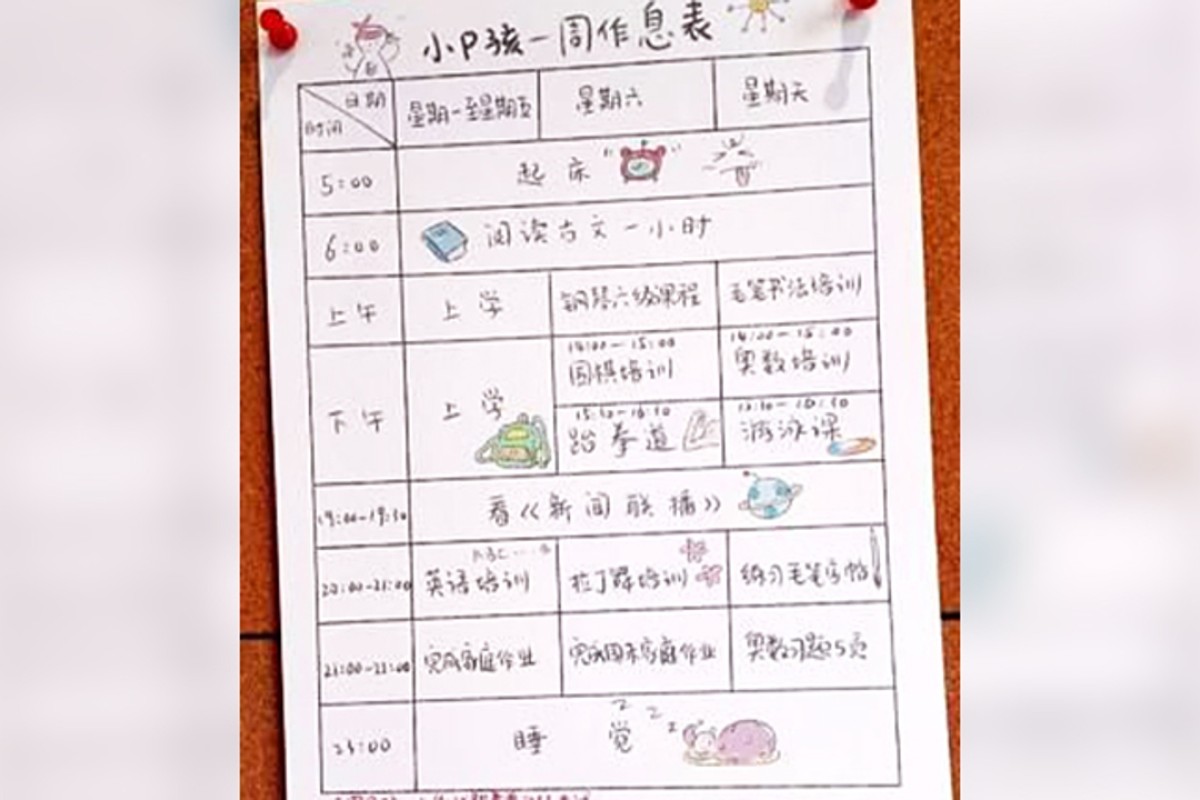 小P孩一周作息表
日期
时间
星期一至星期五
星期六
星期天
5:00
起床
6:00
阅读古文一小时
上午
上学
钢琴六级课程
毛笔书法培训
下午
上学
14:00-15:00
围棋培训
14:00-15:00
奥数培训
15:30-16:30
跆拳道
15:30-16:30
游泳课
19:00-19:30
看《新闻联播》
20:00-21:00
英语培训
拉丁舞培训
练习毛笔字帖
21:00-22:00
完成家庭作业
完成周末家庭作业
奥数习题5页
23:00
睡觉
z z z